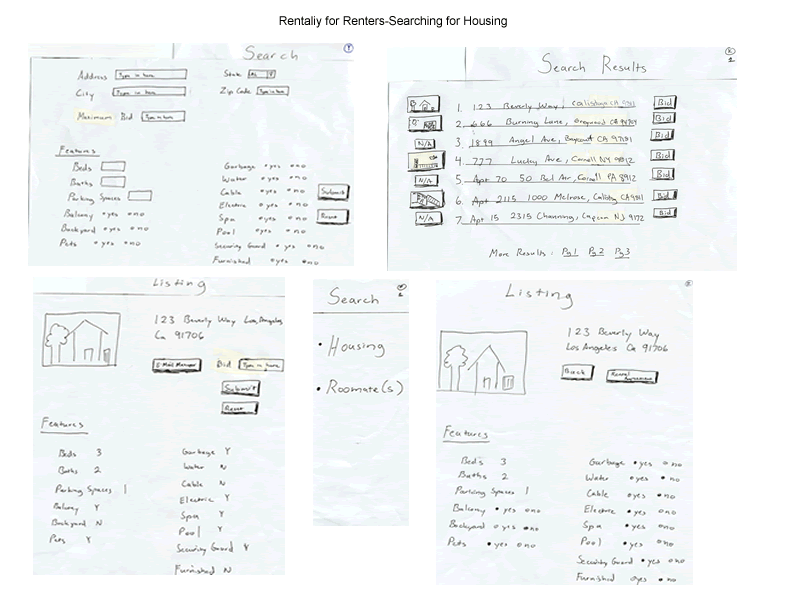 Rentaliy for Renters-Searching for Housing
Search
Address Type in here
State AL
City Type in here
Zip Code Type in here
Maximum Bid Type in here
Features
Beds
Baths
Parking Spaces
Balcony yes no
Backyard yes no
Pets yes no
Garbage yes no
Water yes no
Cable yes no
Electric yes no
Spa yes no
Pool yes no
Security Guard yes no
Furnished yes no
Submit
Reset
Search Results
1. 123 Beverly Way, CA Bid
2. 666 Burning Lane, CA Bid
N/A 3. 1899 Angel Ave, CA Bid
4. 777 Lucky Ave, Cornell NY Bid
N/A 5. Apt 70 50 Bel Air, Cornell PA 8912 Bid
6. Apt 2115 1000 Melrose, CA Bid
N/A 7. Apt 15 2315 Channing, NJ 9172 Bid
More Results: Pg1 Pg2 Pg3
Listing
123 Beverly Way Los Angeles
Ca 91706
E-Mail Manager Bid Type in here
Submit
Reset
Features
Beds 3
Baths 2
Parking Spaces 1
Balcony Y
Backyard N
Pets Y
Garbage Y
Water N
Cable N
Electric Y
Spa Y
Pool Y
Security Guard Y
Furnished N
Search
Housing
Roomate(s)
Listing
123 Beverly Way
Los Angeles Ca 91706
Back Rental Agreement
Features
Beds 3
Baths 2
Parking Spaces 1
Balcony yes no
Backyard yes no
Pets yes no
Garbage yes no
Water yes no
Cable yes no
Electric yes no
Spa yes no
Pool yes no
Security Guard yes no
Furnished yes no